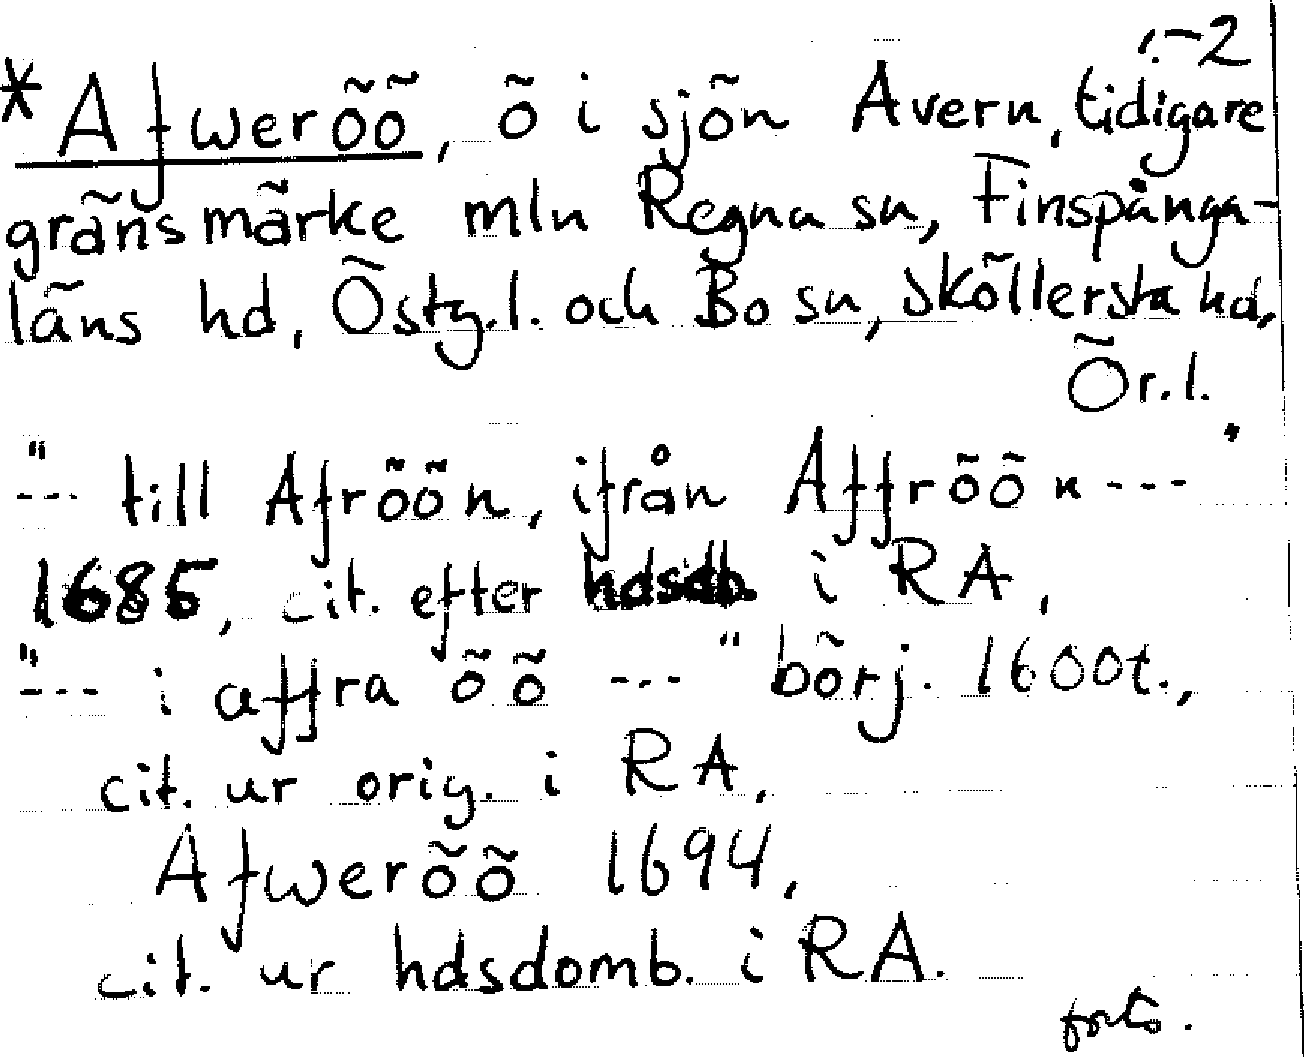 1-2
*Afweröö, ö i sjön Avern, tidigare
gränsmärke mln Regna sn, Finspånga-
läns hd, Östg.l. och Bo sn, Sköllersta hd,
Ör.l.
"--- till Afröön, ifrån Affröön ---"
1685, cit. efter hdsdb. i RA,
"--- i affra öö ---" börj. 1600t.,
cit. ur orig. i RA,
Afweröö 1694,
cit. ur hdsdomb. i RA.
forts.